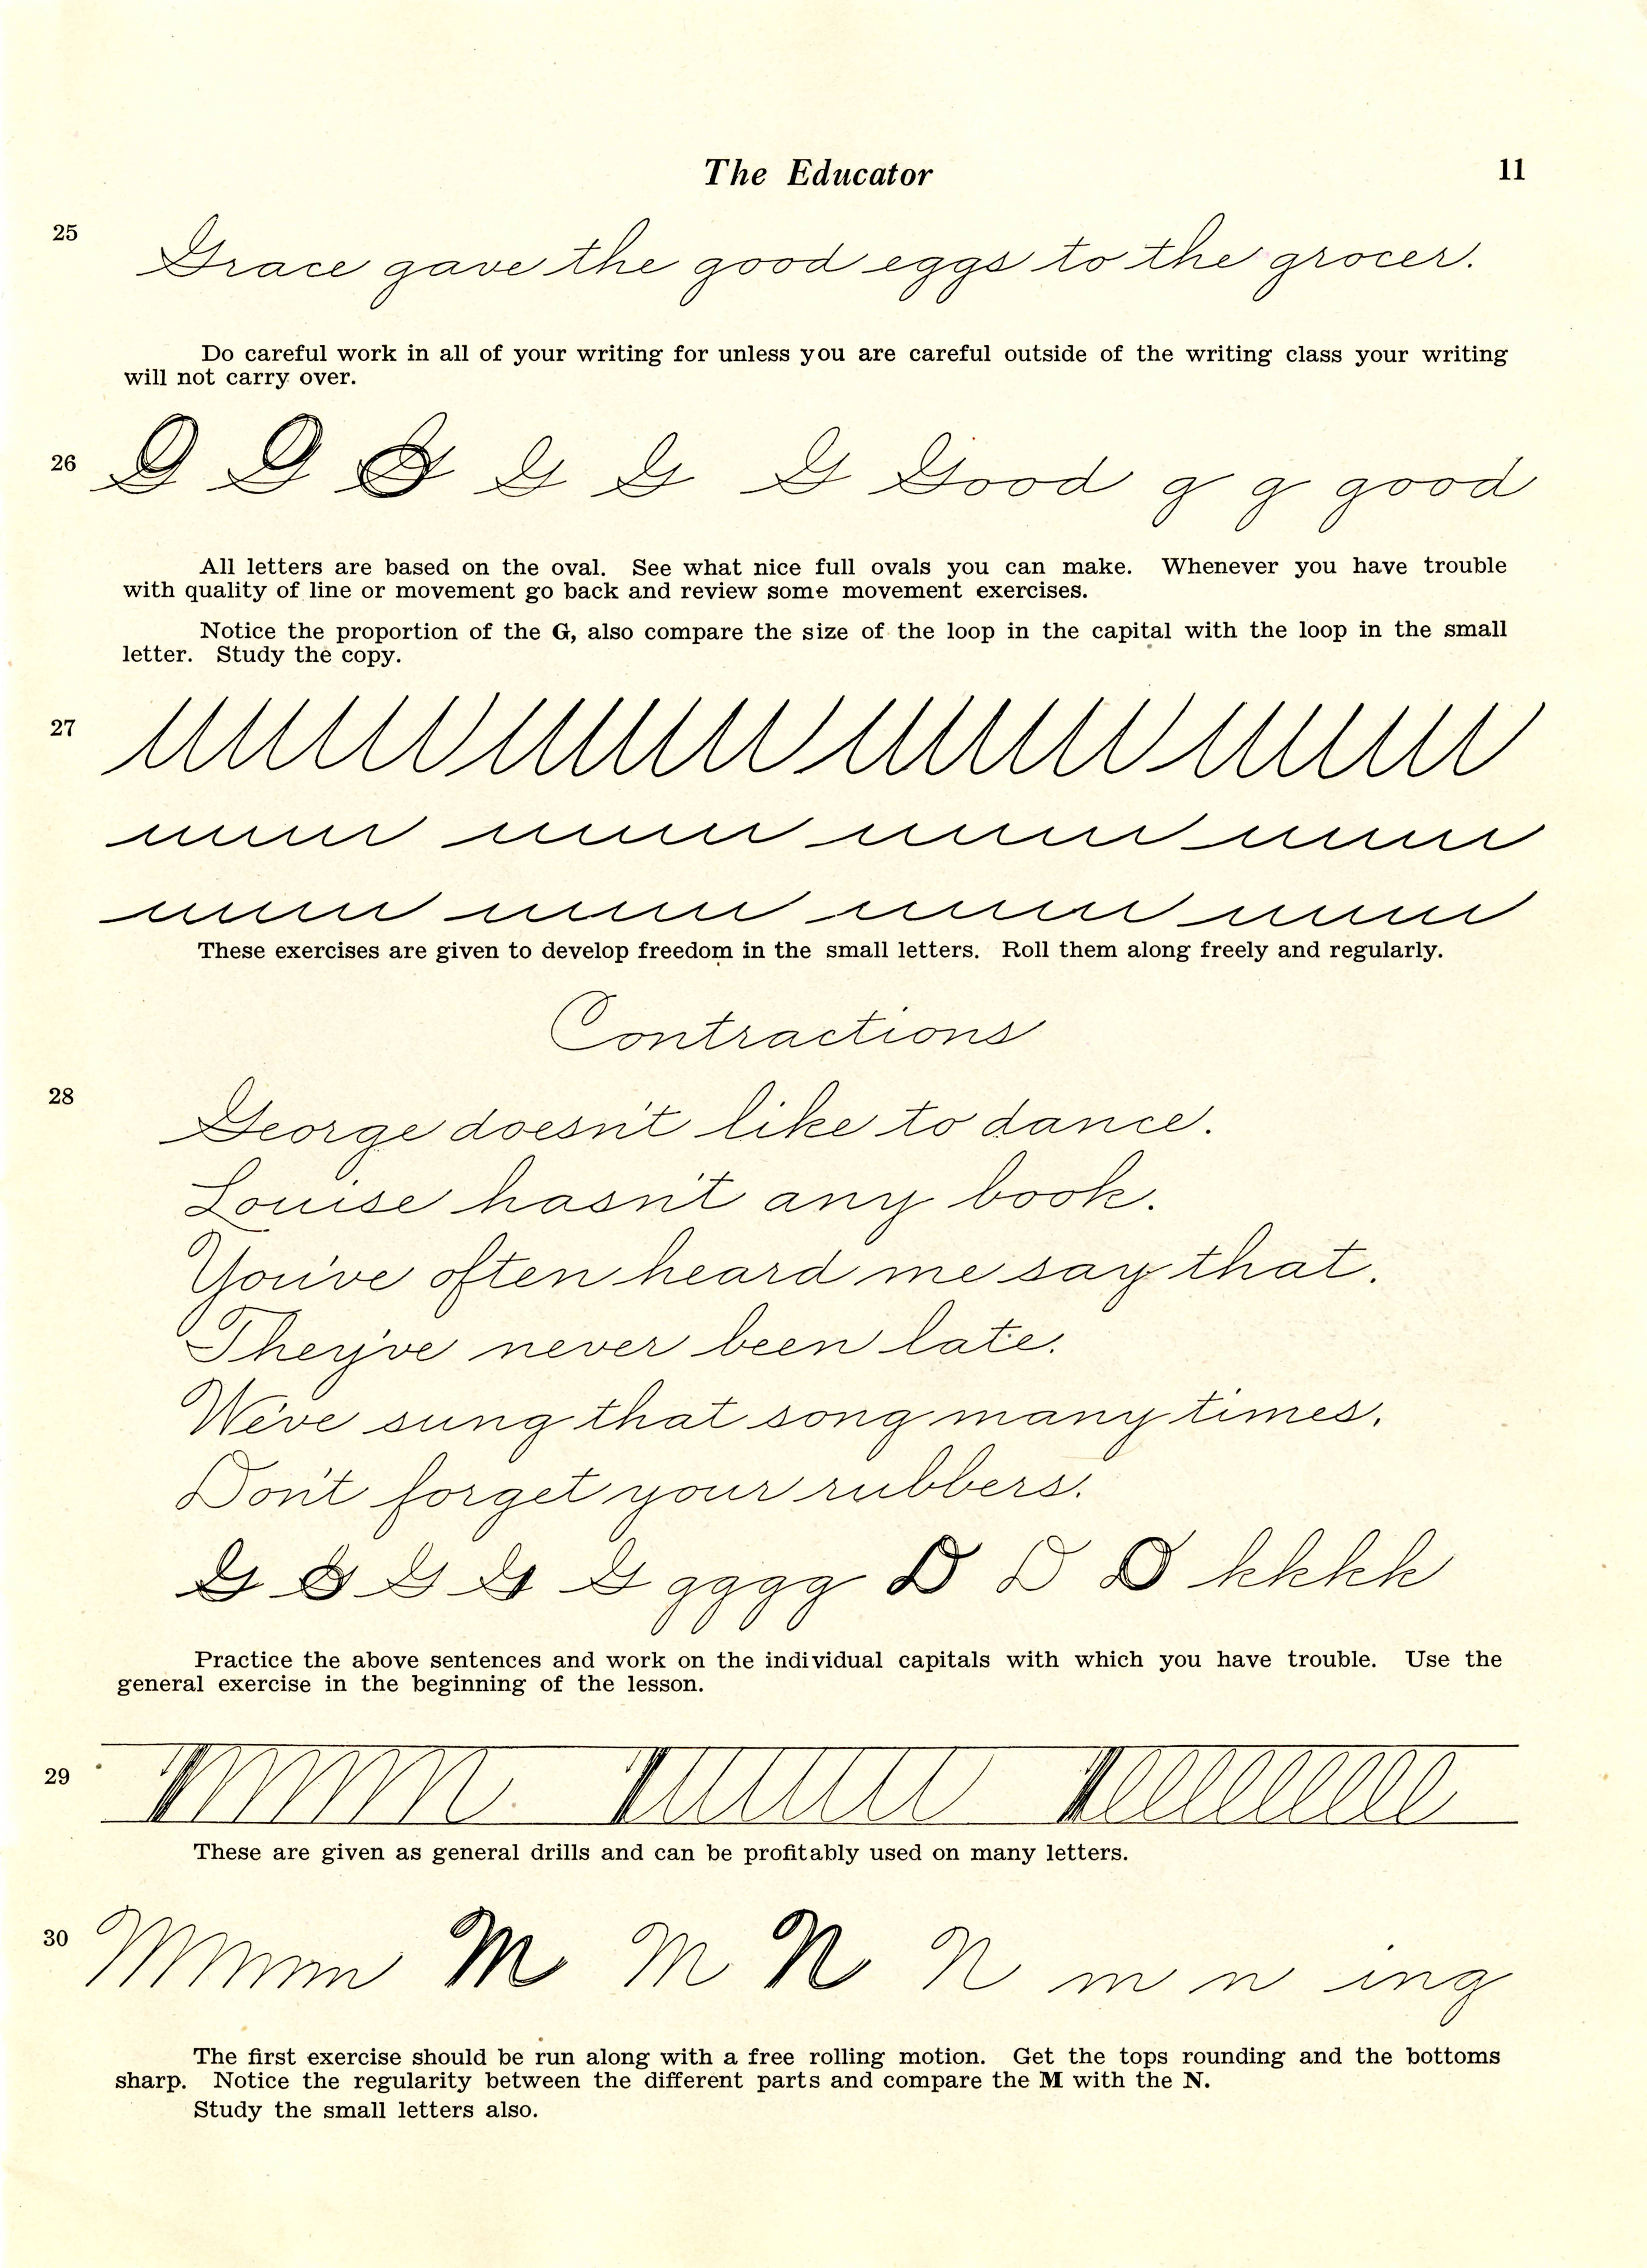 The Educator 11
25
Grace gave the good eggs to the grocer.
Do careful work in all of your writing for unless you are careful outside of the writing class your writing
will not carry over.
26
G G G G G G Good g g good
All letters are based on the oval. See what nice full ovals you can make. Whenever you have trouble
with quality of line or movement go back and review some movement exercises.
Notice the proportion of the G, also compare the size of the loop in the capital with the loop in the small
letter. Study the copy.
27
These exercises are given to develop freedom in the small letters. Roll them along freely and regularly.
Contractions
28
George doesn't like to dance.
Louise hasn't any book.
You've often heard me say that.
They've never been late.
We've sung that song many times.
Don't forget your rubbers.
G G G G G gggg D D D kkkk
Practice the above sentences and work on the individual capitals with which you have trouble. Use the
general exercise in the beginning of the lesson.
29
These are given as general drills and can be profitably used on many letters.
30
Mmm M M N N m n ing
The first exercise should be run along with a free rolling motion. Get the tops rounding and the bottoms
sharp. Notice the regularity between the different parts and compare the M with the N.
Study the small letters also.